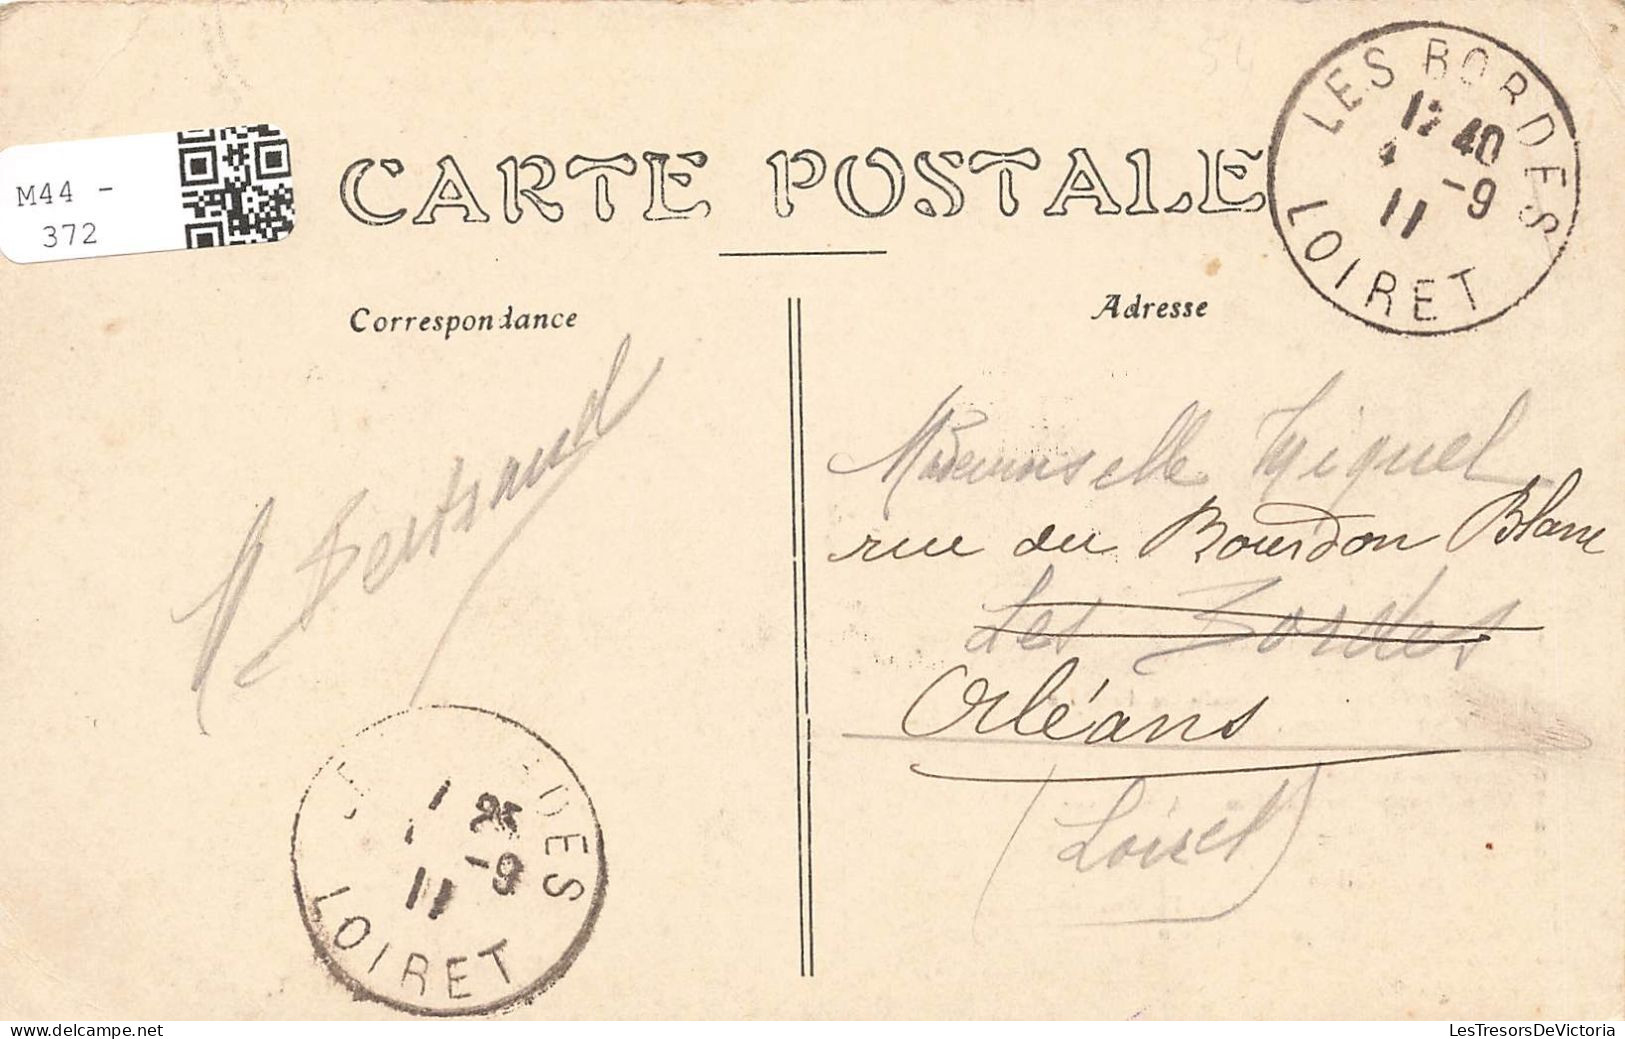 M44 -
372
CARTE POSTALE
LES BORDES
12 40
4 -9
11
LOIRET
Correspondance
Adresse
M Bertrand
Mademoiselle Miquel
rue du Bourdon Blanc
Les Bordes
Orléans
(Loiret)
DES
1 25
-9
11
LOIRET
LesTresorsDeVictoria